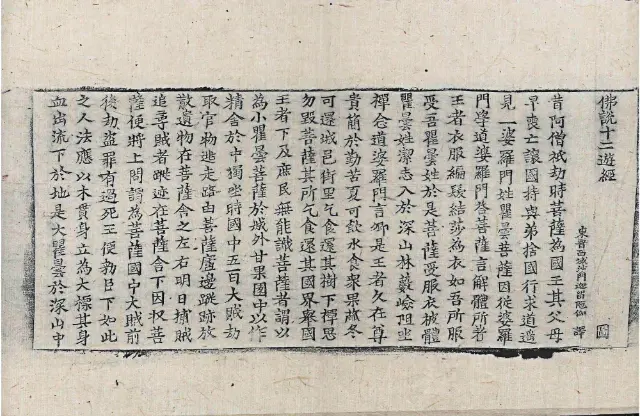 佛說十二遊經
東晉西域沙門迦留陀伽 譯
昔阿僧祇劫時菩薩為國王其父母
早喪亡讓國持與弟捨國行求道遙
見一婆羅門姓瞿曇菩薩因從婆羅
門學道婆羅門荅菩薩言解體所著
王者衣服編髮結莎為衣如吾所服
受吾瞿曇姓於是菩薩受服衣被體
瞿曇姓潔志入於深山林藪嶮阻坐
禪念道婆羅門言卿是王者久在尊
貴簡於勤苦夏可飲水食眾果蓏冬
可還城邑街里乞食還其樹下禪思
勿毀菩薩其所乞食還其國界舉國
王者下及庶民無能識菩薩者謂以
為小瞿曇菩薩於城外甘果園中以作
精舍於中獨坐時國中五百大賊劫
取官物逃走路由菩薩廬邊蹤跡放
散遺物在菩薩舍之左右明日捕賊
追尋賊者蹤迹在菩薩舍下因收菩
薩便將上問謂為菩薩國中大賊前
後劫盜罪有過死王便勑臣下如此
之人法應以木貫身立為大摽其身
血出流下於地是大瞿曇於深山中